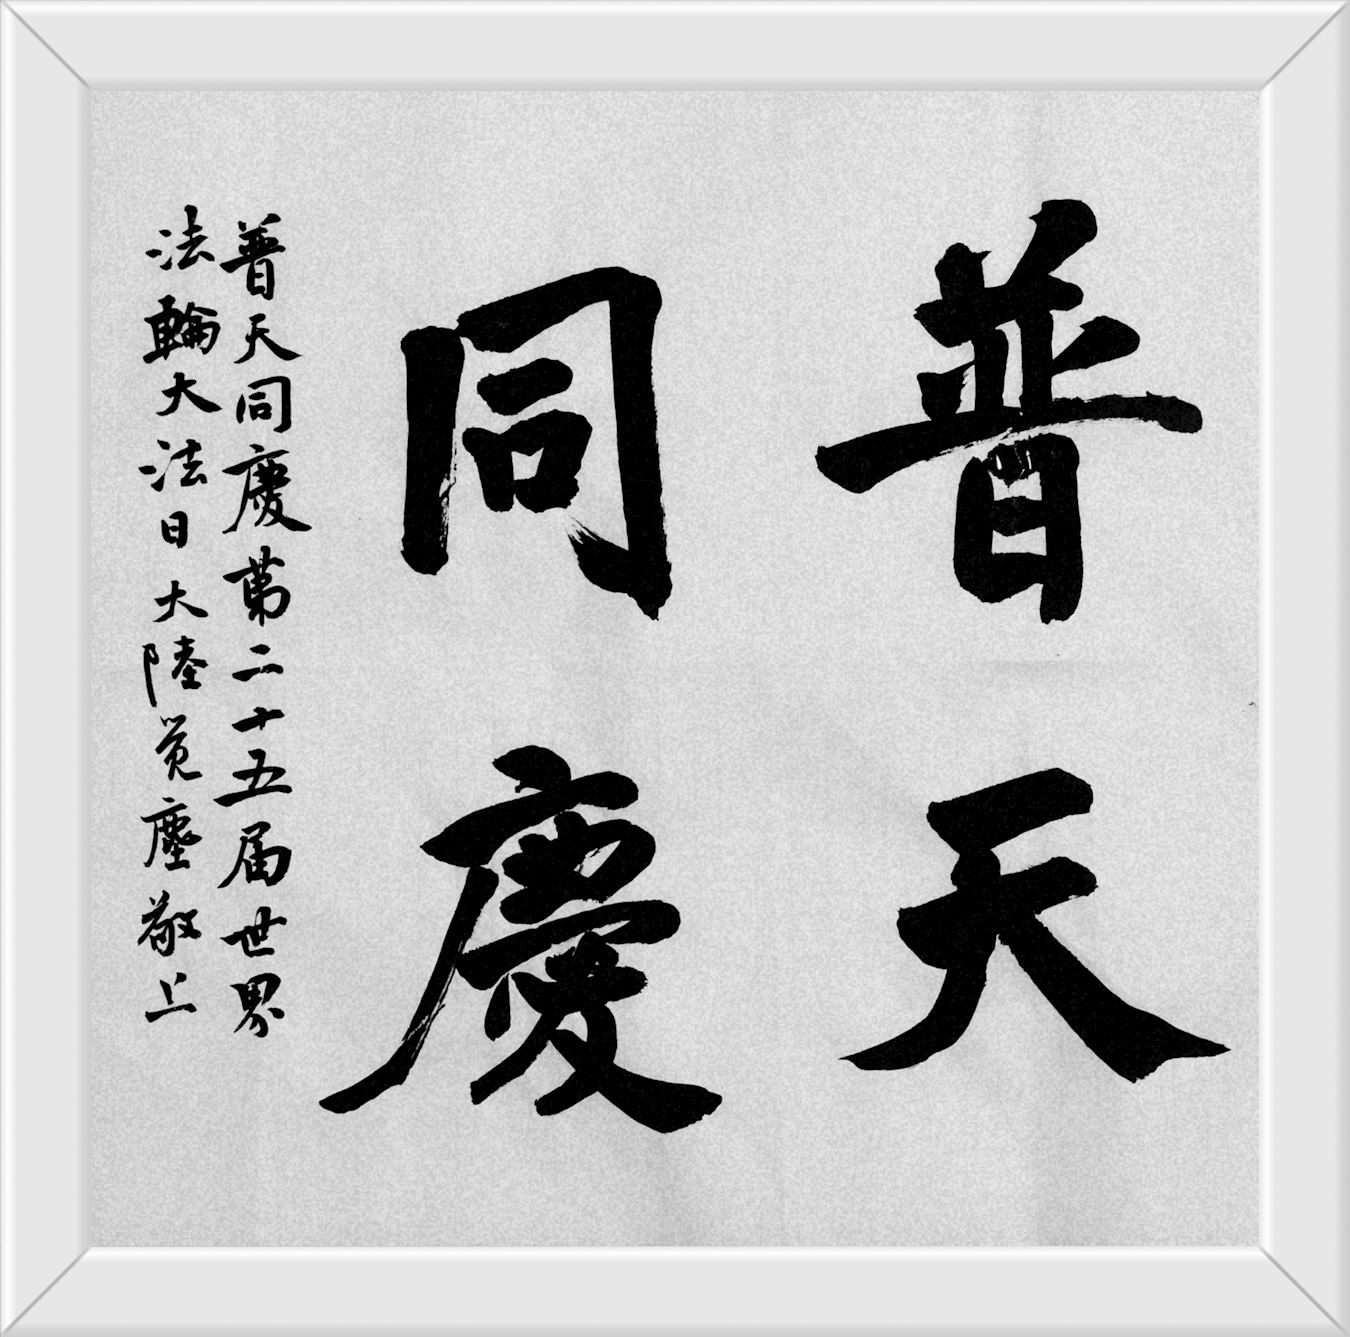 普天
同慶
普天同慶第二十五届世界
法輪大法日大陸覓塵敬上